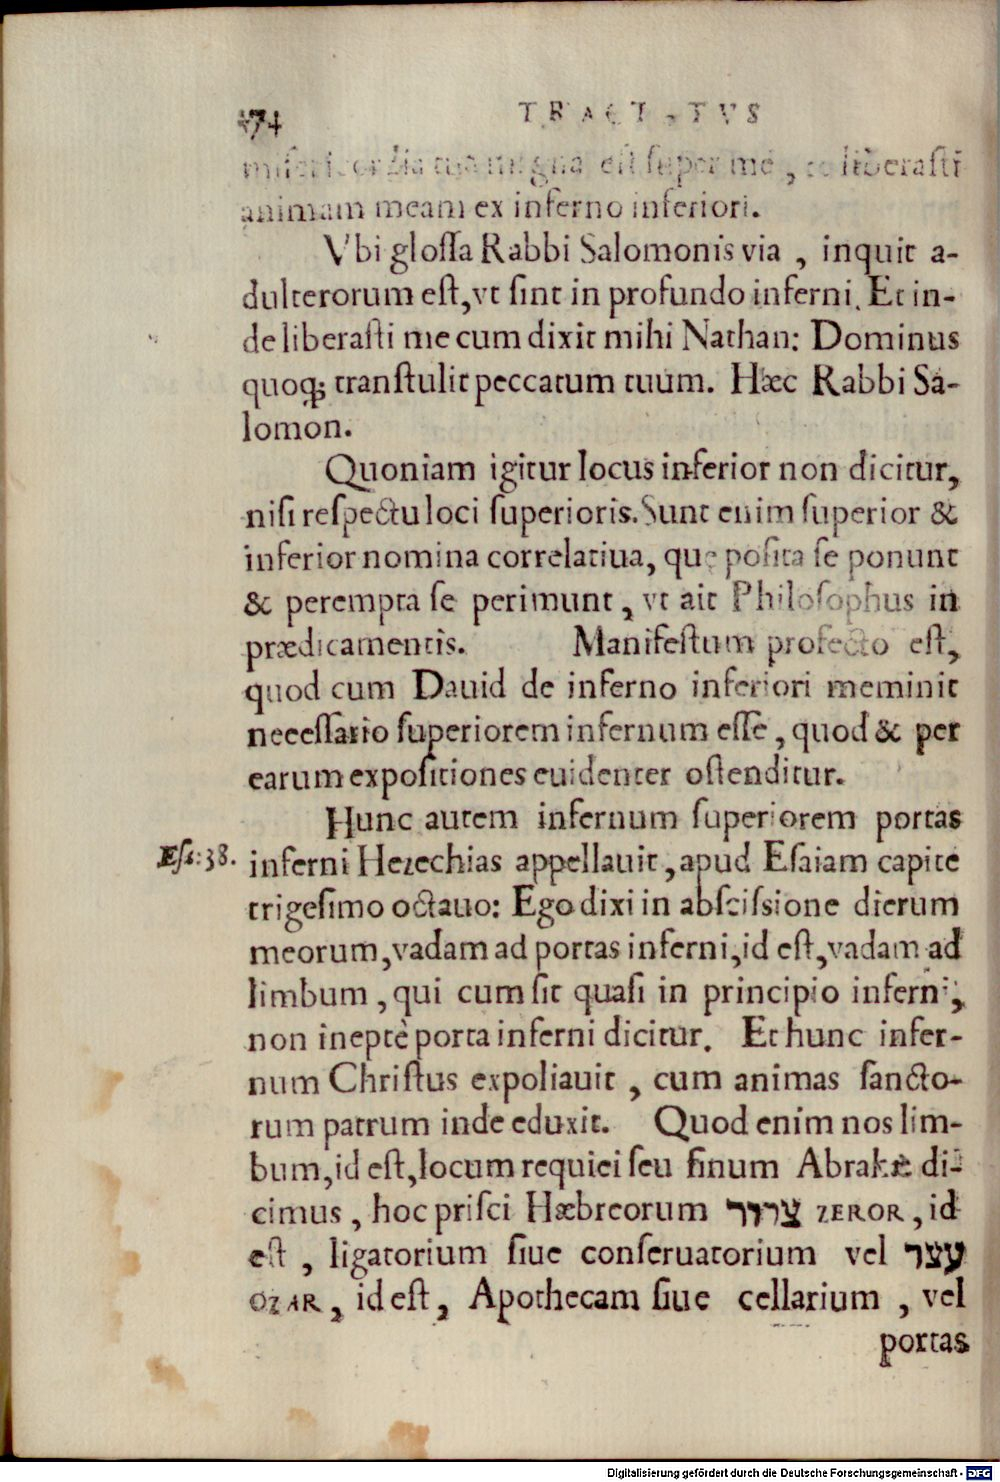 174 TRACTATVS
misericordia tua magna est super me, & liberasti
animam meam ex inferno inferiori.
Vbi glossa Rabbi Salomonis via, inquit a-
dulterorum est, vt sint in profundo inferni. Et in-
de liberasti me cum dixit mihi Nathan: Dominus
quoq; transtulit peccatum tuum. Hæc Rabbi Sa-
lomon.
Quoniam igitur locus inferior non dicitur,
nisi respectu loci superioris. Sunt enim superior &
inferior nomina correlatiua, que posita se ponunt
& perempta se perimunt, vt ait Philosophus in
prædicamentis. Manifestum profecto est,
quod cum Dauid de inferno inferiori meminit
necessario superiorem infernum esse, quod & per
earum expositiones euidenter ostenditur.
Hunc autem infernum superiorem portas
Esa: 38. inferni Hezechias appellauit, apud Esaiam capite
trigesimo octauo: Ego dixi in abscissione dierum
meorum, vadam ad portas inferni, id est, vadam ad
limbum, qui cum sit quasi in principio inferni,
non ineptè porta inferni dicitur. Et hunc infer-
num Christus expoliauit, cum animas sancto-
rum patrum inde eduxit. Quod enim nos lim-
bum, id est, locum requiei seu sinum Abrahę di-
cimus, hoc prisci Hæbreorum צרור ZEROR, id
est, ligatorium siue conseruatorium vel עצר
OZAR, id est, Apothecam siue cellarium, vel
portas
Digitalisierung gefördert durch die Deutsche Forschungsgemeinschaft - DFG